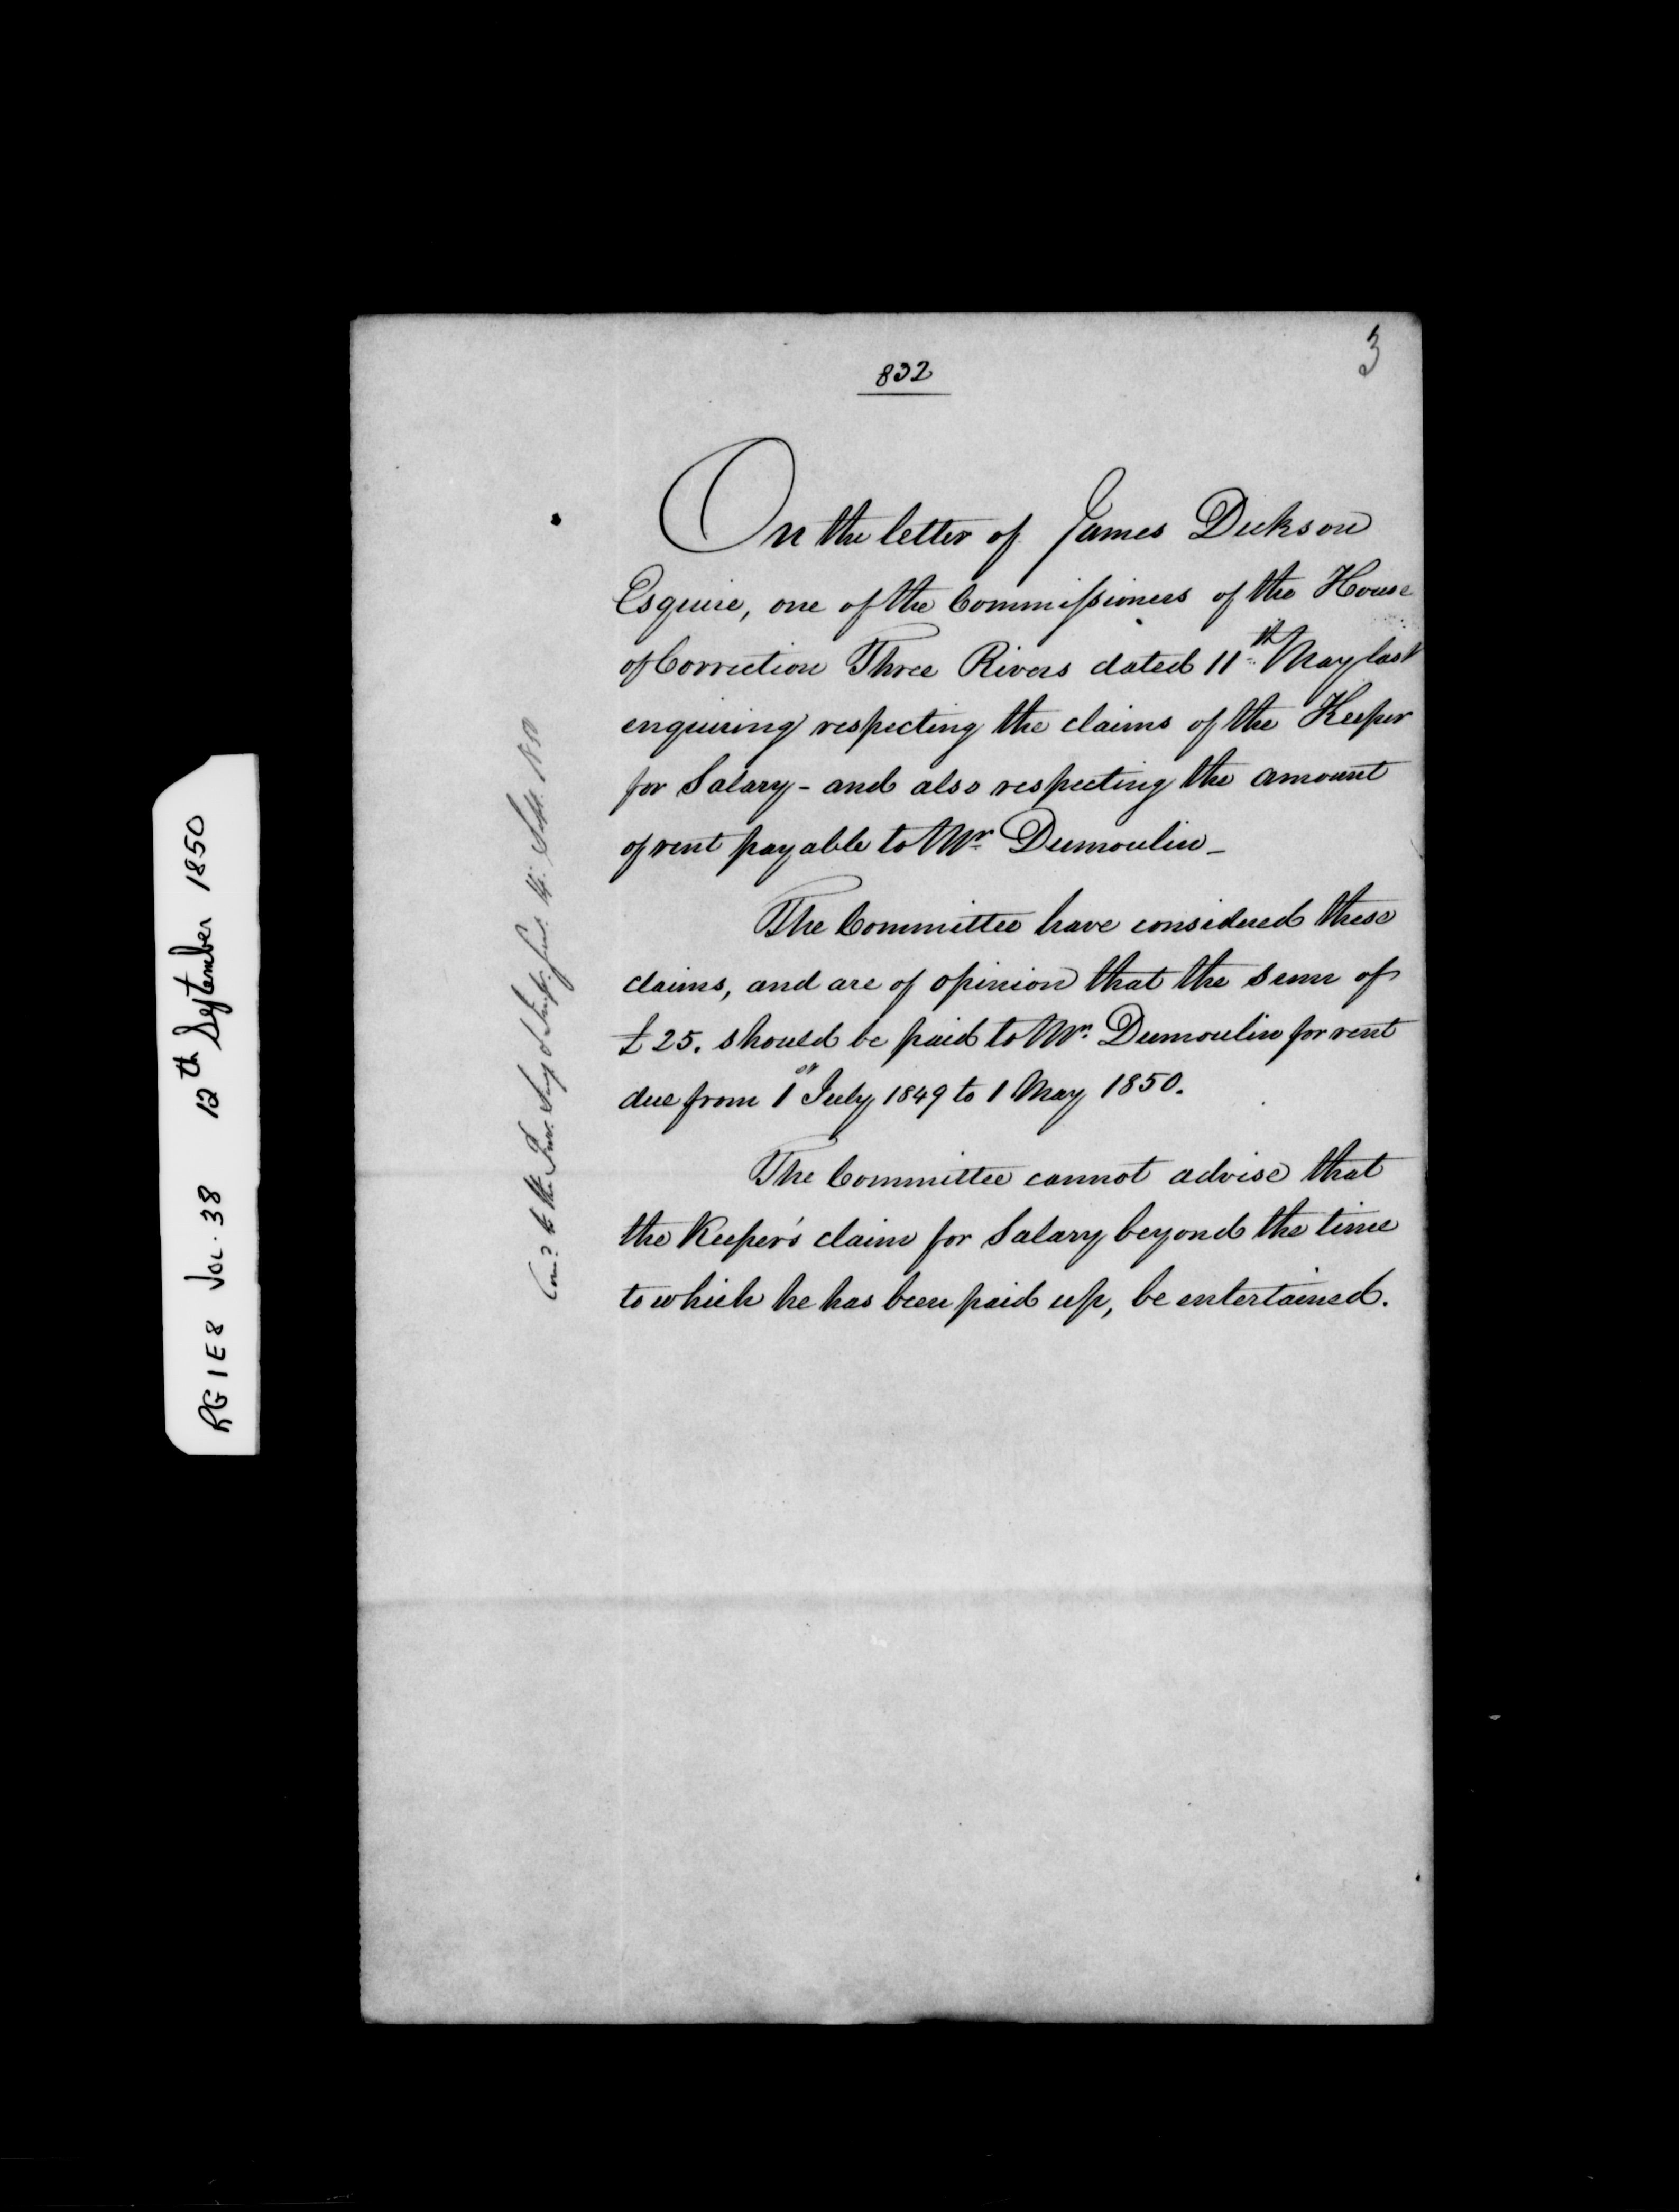 832
3
On the letter of James Dickson
Esquire, one of the Commissioners of the House
of Correction Three Rivers dated 11th May last
enquiring respecting the claims of the Keeper
for Salary - and also respecting the amount
of rent payable to Mr. Dumoulin -
The Committee have considered these
claims, and are of opinion that the sum of
£25. should be paid to Mr. Dumoulin for rent
due from 1st July 1849 to 1 May 1850.
The Committee cannot advise that
the Keeper's claim for Salary beyond the time
to which he has been paid up, be entertained.
to the Insp. Genl. Sept. 1850
RG1E8 Vol. 38 12th September 1850